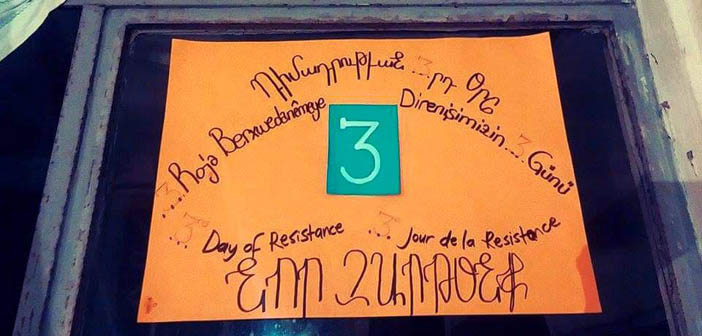 Դիմադրութեան 3...րդ Օրը
3 ....Roja Berxwedanêmeye
Direnişimizin .... 3 Günü
3
3rd .... Day of Resistance
3 ... Jour de la Resistance
ՆՈՐ ԶԱՐԹՕՆՔ